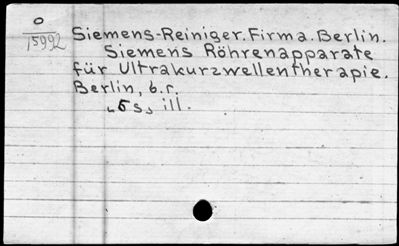 O
15992
Siemens-Reiniger. Firma. Berlin.
Siemens Röhrenapparate
für Ultrakurzwellentherapie.
Berlin, b.r.
„5 s„ ill.